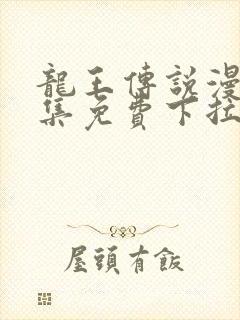 龍王傳說漫
集免費下拉
屋頭有飯